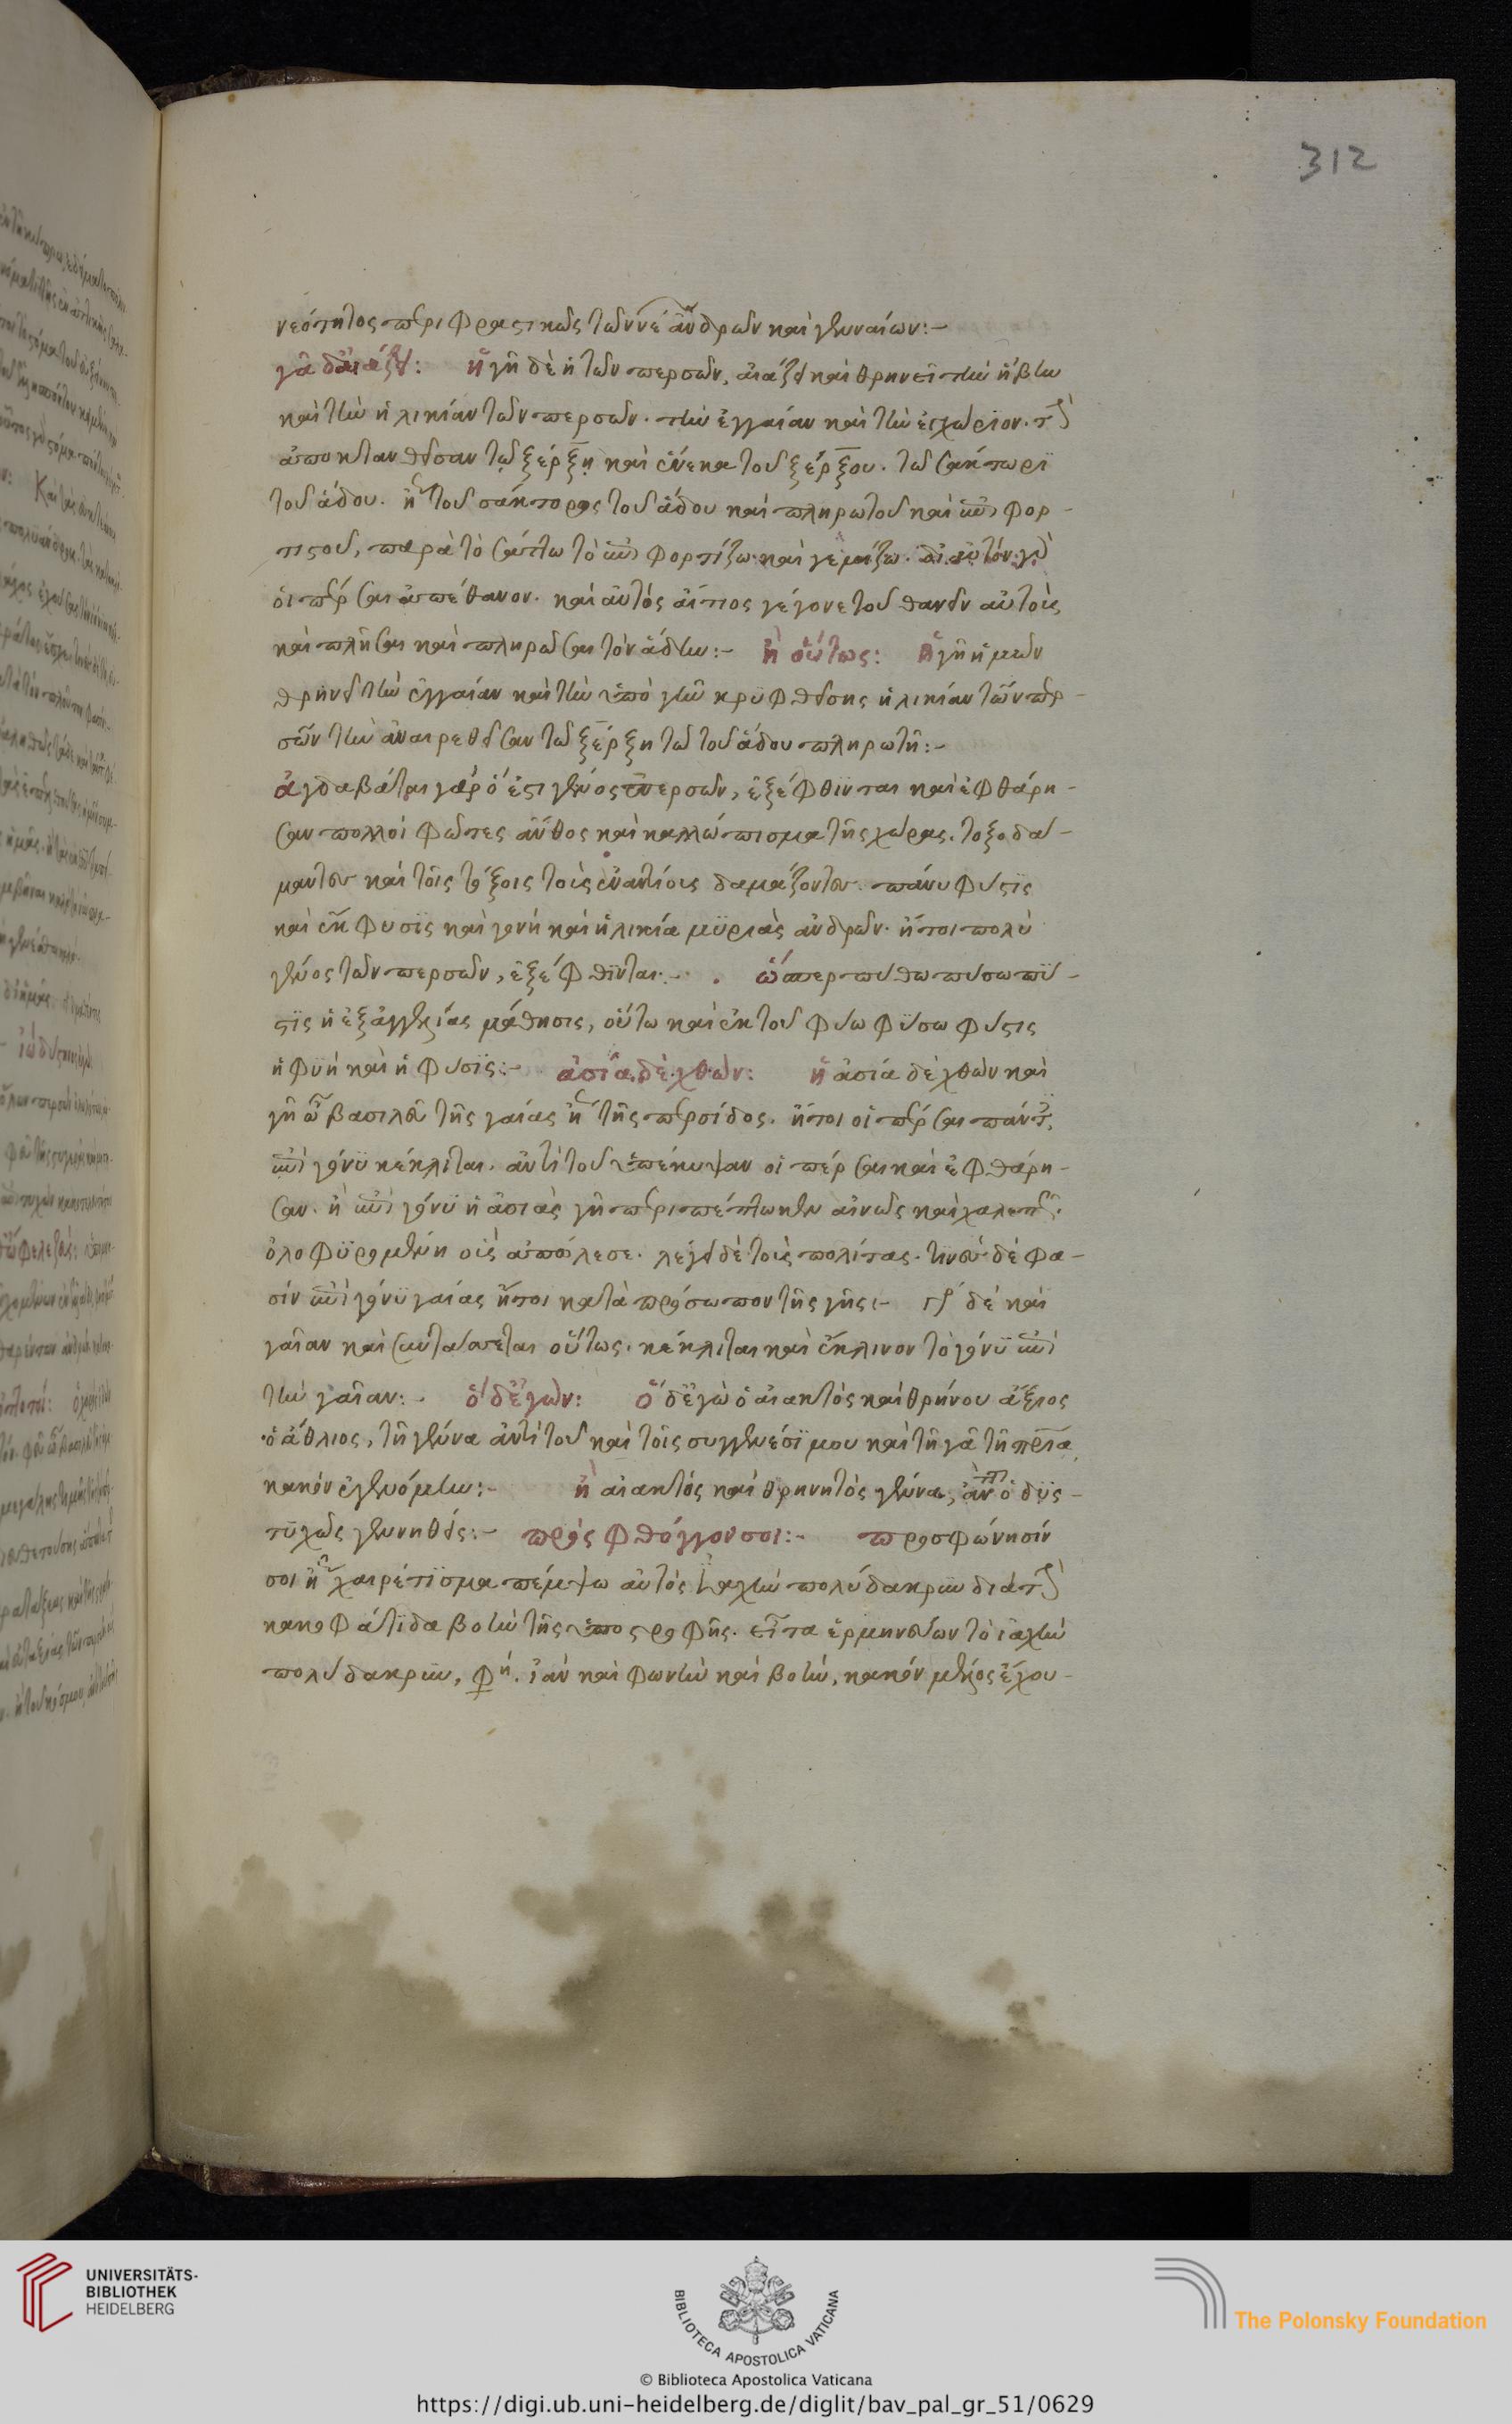 312
νεότητος περιφραστικῶς τῶν νέ ἀνδρῶν καὶ γενναίων:-
γᾶ δ' αἰάζει: ἡ γῆ δὲ ἡ τῶν περσῶν, αἰάζει καὶ θρηνεῖ τὴν ἥβην
καὶ τὴν ἡλικίαν τῶν περσῶν. τὴν ἐγγαίαν καὶ τὴν ἐγχώριον. τὴν
ἀποκτανθεῖσαν τῷ ξέρξῃ καὶ ἕνεκα τοῦ ξέρξου. τῷ σάκτωρϊ
τοῦ ἅδου. ἢ τοῦ σάκτορος τοῦ ἅδου καὶ πληρωτοῦ καὶ ἐπιφορ-
τιστοῦ, παρὰ τὸ σάττω τὸ ἐπιφορτίζω καὶ γεμίζω. δι αὐτὸν γὰρ
οἱ πέρσαι ἀπέθανον. καὶ αὐτὸς αἴτιος γέγονε τοῦ θανεῖν αὐτοὺς
καὶ πλῆσαι καὶ πληρῶσαι τὸν ἅδην:- ἢ οὕτως: ἡ γῆ ἡμῶν
θρηνεῖ τὴν ἐγγαίαν καὶ τὴν ὑπὸ γῆν κρυφθεῖσης ἡλικίαν τῶν περ-
σῶν τὴν ἀναιρεθεῖσαν τῷ ξέρξῃ τῷ τοῦ ἅδου πληρωτῇ:-
ἀγδαβάται γὰρ ὅ ἐστι γένος περσῶν, ἐξέφθινται καὶ ἐφθάρη-
σαν πολλοὶ φῶτες ἄνθος καὶ καλλώπισμα τῆς χώρας. τοξοδά-
μαντες καὶ τοῖς τόξοις τοὺς ἐναντίους δαμάζοντες. πάνυ φύστϊς
καὶ ἔκφυσϊς καὶ γονὴ καὶ ἡλικία μϋριὰς ἀνδρῶν. ἤτοι πολὺ
γένος τῶν περσῶν, ἐξέφθϊνται:- ὥσπερ πύθω πύσω πύ-
στϊς ἡ ἐξ ἀγγελίας μάθησις, οὕτω καὶ ἐκ τοῦ φύω φύσω φύστις
ἡ φϋὴ καὶ ἡ φύσϊς:- ἀσία δὲ χθών: ἡ ἀσία δὲ χθὼν καὶ
γῆ ὦ βασιλεῦ τῆς γαίας ἢ τῆς περσίδος. ἤτοι οἱ πέρσαι πάντες
ἐπὶ γόνϋ κέκλιται. ἀντὶ τοῦ ὑπέκυψαν οἱ πέρσαι καὶ ἐφθάρη-
σαν. ἢ ἐπὶ γόνϋ ἡ ἀσιὰς γῆ περιπέπτωκεν αἰνῶς καὶ χαλεπῶς.
ὀλοφϋρομένη οὓς ἀπώλεσε. λέγει δὲ τοὺς πολίτας. τινὲς δέ φα-
σίν ἐπὶ γόνϋ γαίας ἤτοι κατὰ πρόσωπον τῆς γῆς:- γρ δὲ καὶ
γαῖαν καὶ συντάσσεται οὕτως. κέκλιται καὶ ἔκλινον τὸ γόνϋ ἐπὶ
τὴν γαῖαν:- ὅδ' ἐγών: ὅδ' ἐγὼ ὁ αἰακτὸς καὶ θρήνου ἄξιος
ὁ ἄθλιος, τῇ γέννα ἀντὶ τοῦ καὶ τοῖς συγγενέσϊ μου καὶ τῇ γᾷ τῇ πατρία
κακὸν ἐγενόμην:- ἢ αἰακτὸς καὶ θρηνητὸς γέννα, ὁ δϋς-
τϋχῶς γεννηθείς:- πρόσφθογγόν σοι:- προσφώνησίν
σοι ἢ χαιρέτϊσμα πέμψω αὐτὸς ἰαχὴν πολύδακρϋν διὰ τὴν
κακοφάτϊδα βοὴν τῆς ὑποστροφῆς. εἶτα ἑρμηνεύων τὸ ἰαχὴν
πολύδακρϋν, φη. ἰὰν καὶ φωνὴν καὶ βοὴν, κακὸν μέλος ἔχου-
UNIVERSITÄTS-
BIBLIOTHEK
HEIDELBERG
BIBLIOTECA APOSTOLICA VATICANA
The Polonsky Foundation
© Biblioteca Apostolica Vaticana
https://digi.ub.uni-heidelberg.de/diglit/bav_pal_gr_51/0629